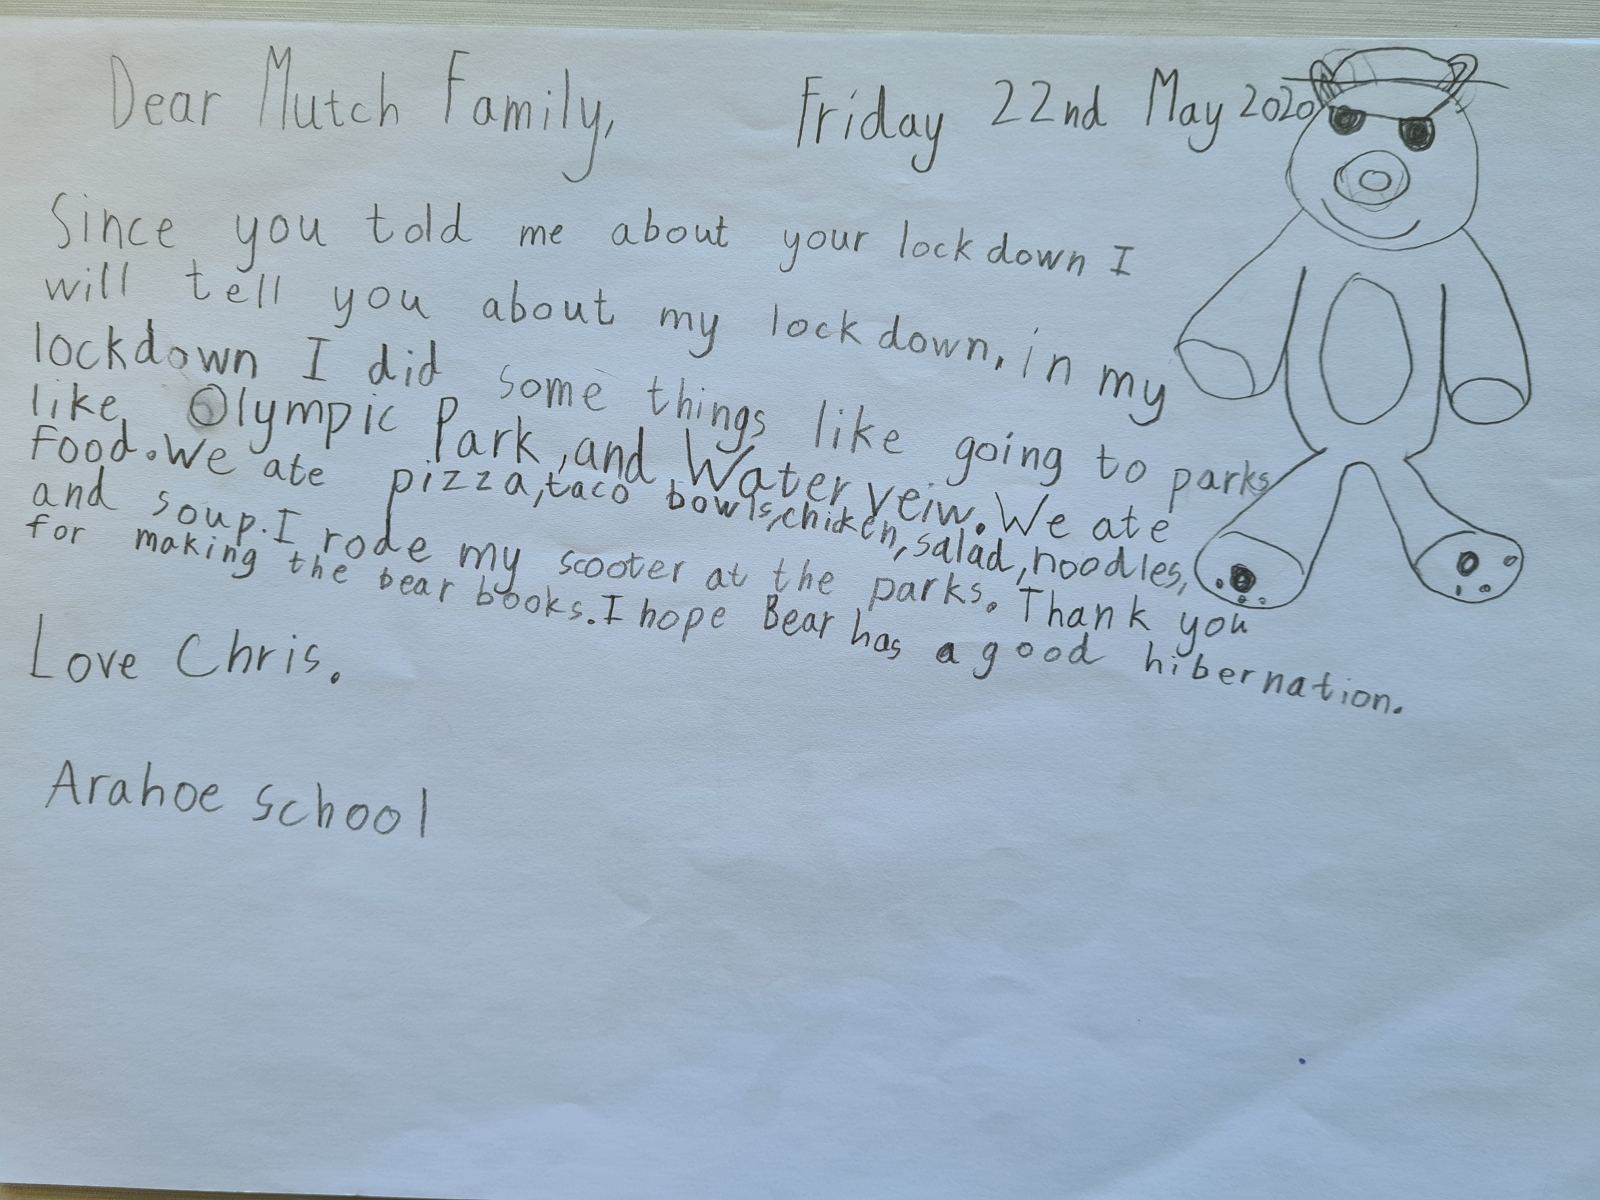 Dear Mutch Family, Friday 22nd May 2020
Since you told me about your lockdown I
will tell you about my lockdown, in my
lockdown I did some things like going to parks
like Olympic Park, and Water veiw. We ate
food. We ate pizza, taco bowls, chiken, salad, noodles,
and soup. I rode my scooter at the parks. Thank you
for making the bear books. I hope Bear has a good hibernation.
Love Chris.
Arahoe school